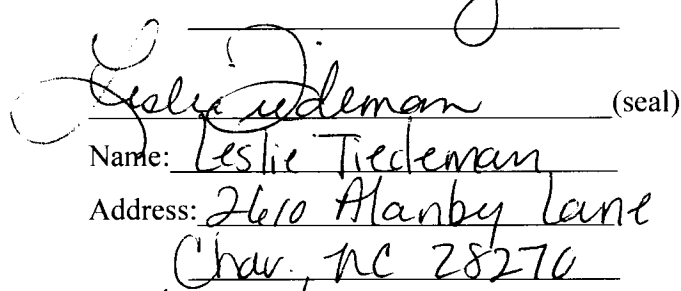 Leslie Tiedeman (seal)
Name: Leslie Tiedeman
Address: 2610 Alanby Lane
Char., NC 28270